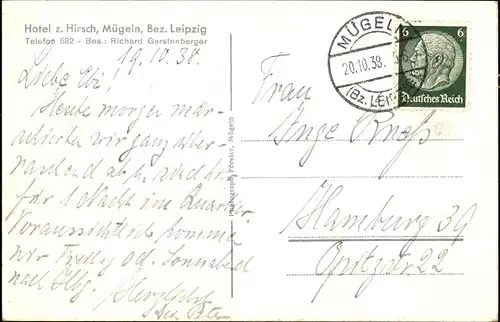 Hotel z. Hirsch, Mügeln, Bez. Leipzig
Telefon 582 - Bes.: Richard Gerstenberger
19.10.38.
Liebe Ebi!
Heute morgen mar-
schierten wir ganz über-
raschend ab u. sind hier
für 1 Nacht im Quartier.
Voraussichtlich kommen
wir Freitag od. Sonnabend
nach Hbg. Herzlichst
Photograph Förster, Mügeln
MÜGELN
20.10.38.
(Bz. LEIPZIG)
6 6
Deutsches Reich
Frau
Inge
Hamburg 39
Opitzstr. 22